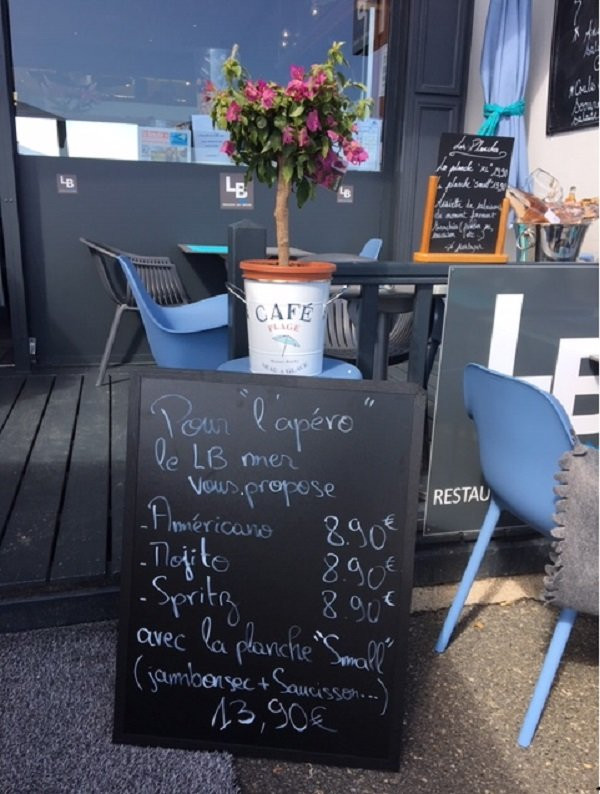 Pour "l'apéro"
le LB mer
vous propose
- Américano 8.90€
- Mojito 8.90€
- Spritz 8.90€
avec la planche "Small"
(jambon sec + Saucisson...)
13,90€
CAFÉ
PLAGE
LB
LB
LB
Les Planches
La planche "XL"
La planche "small"
Assiette de
du moment
RESTAU